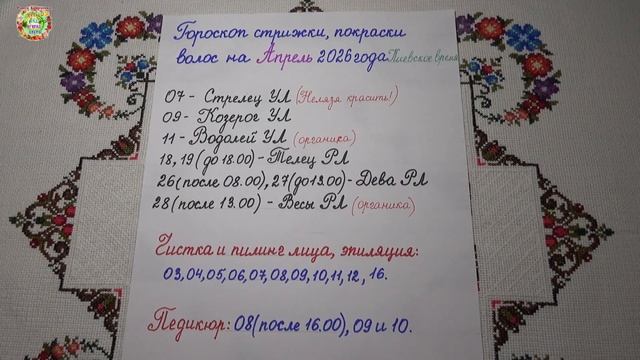 Гороскоп стрижки, покраски
волос на Апрель 2026 года Киевское время
07 - Стрелец УЛ (Нельзя красить!)
09 - Козерог УЛ
11 - Водолей УЛ (органика)
18, 19 (до 18.00) - Телец РЛ
26 (после 08.00), 27 (до 13.00) - Дева РЛ
28 (после 13.00) - Весы РЛ (органика)
Чистка и пилинг лица, эпиляция:
03, 04, 05, 06, 07, 08, 09, 10, 11, 12, 16.
Педикюр: 08 (после 16.00), 09 и 10.